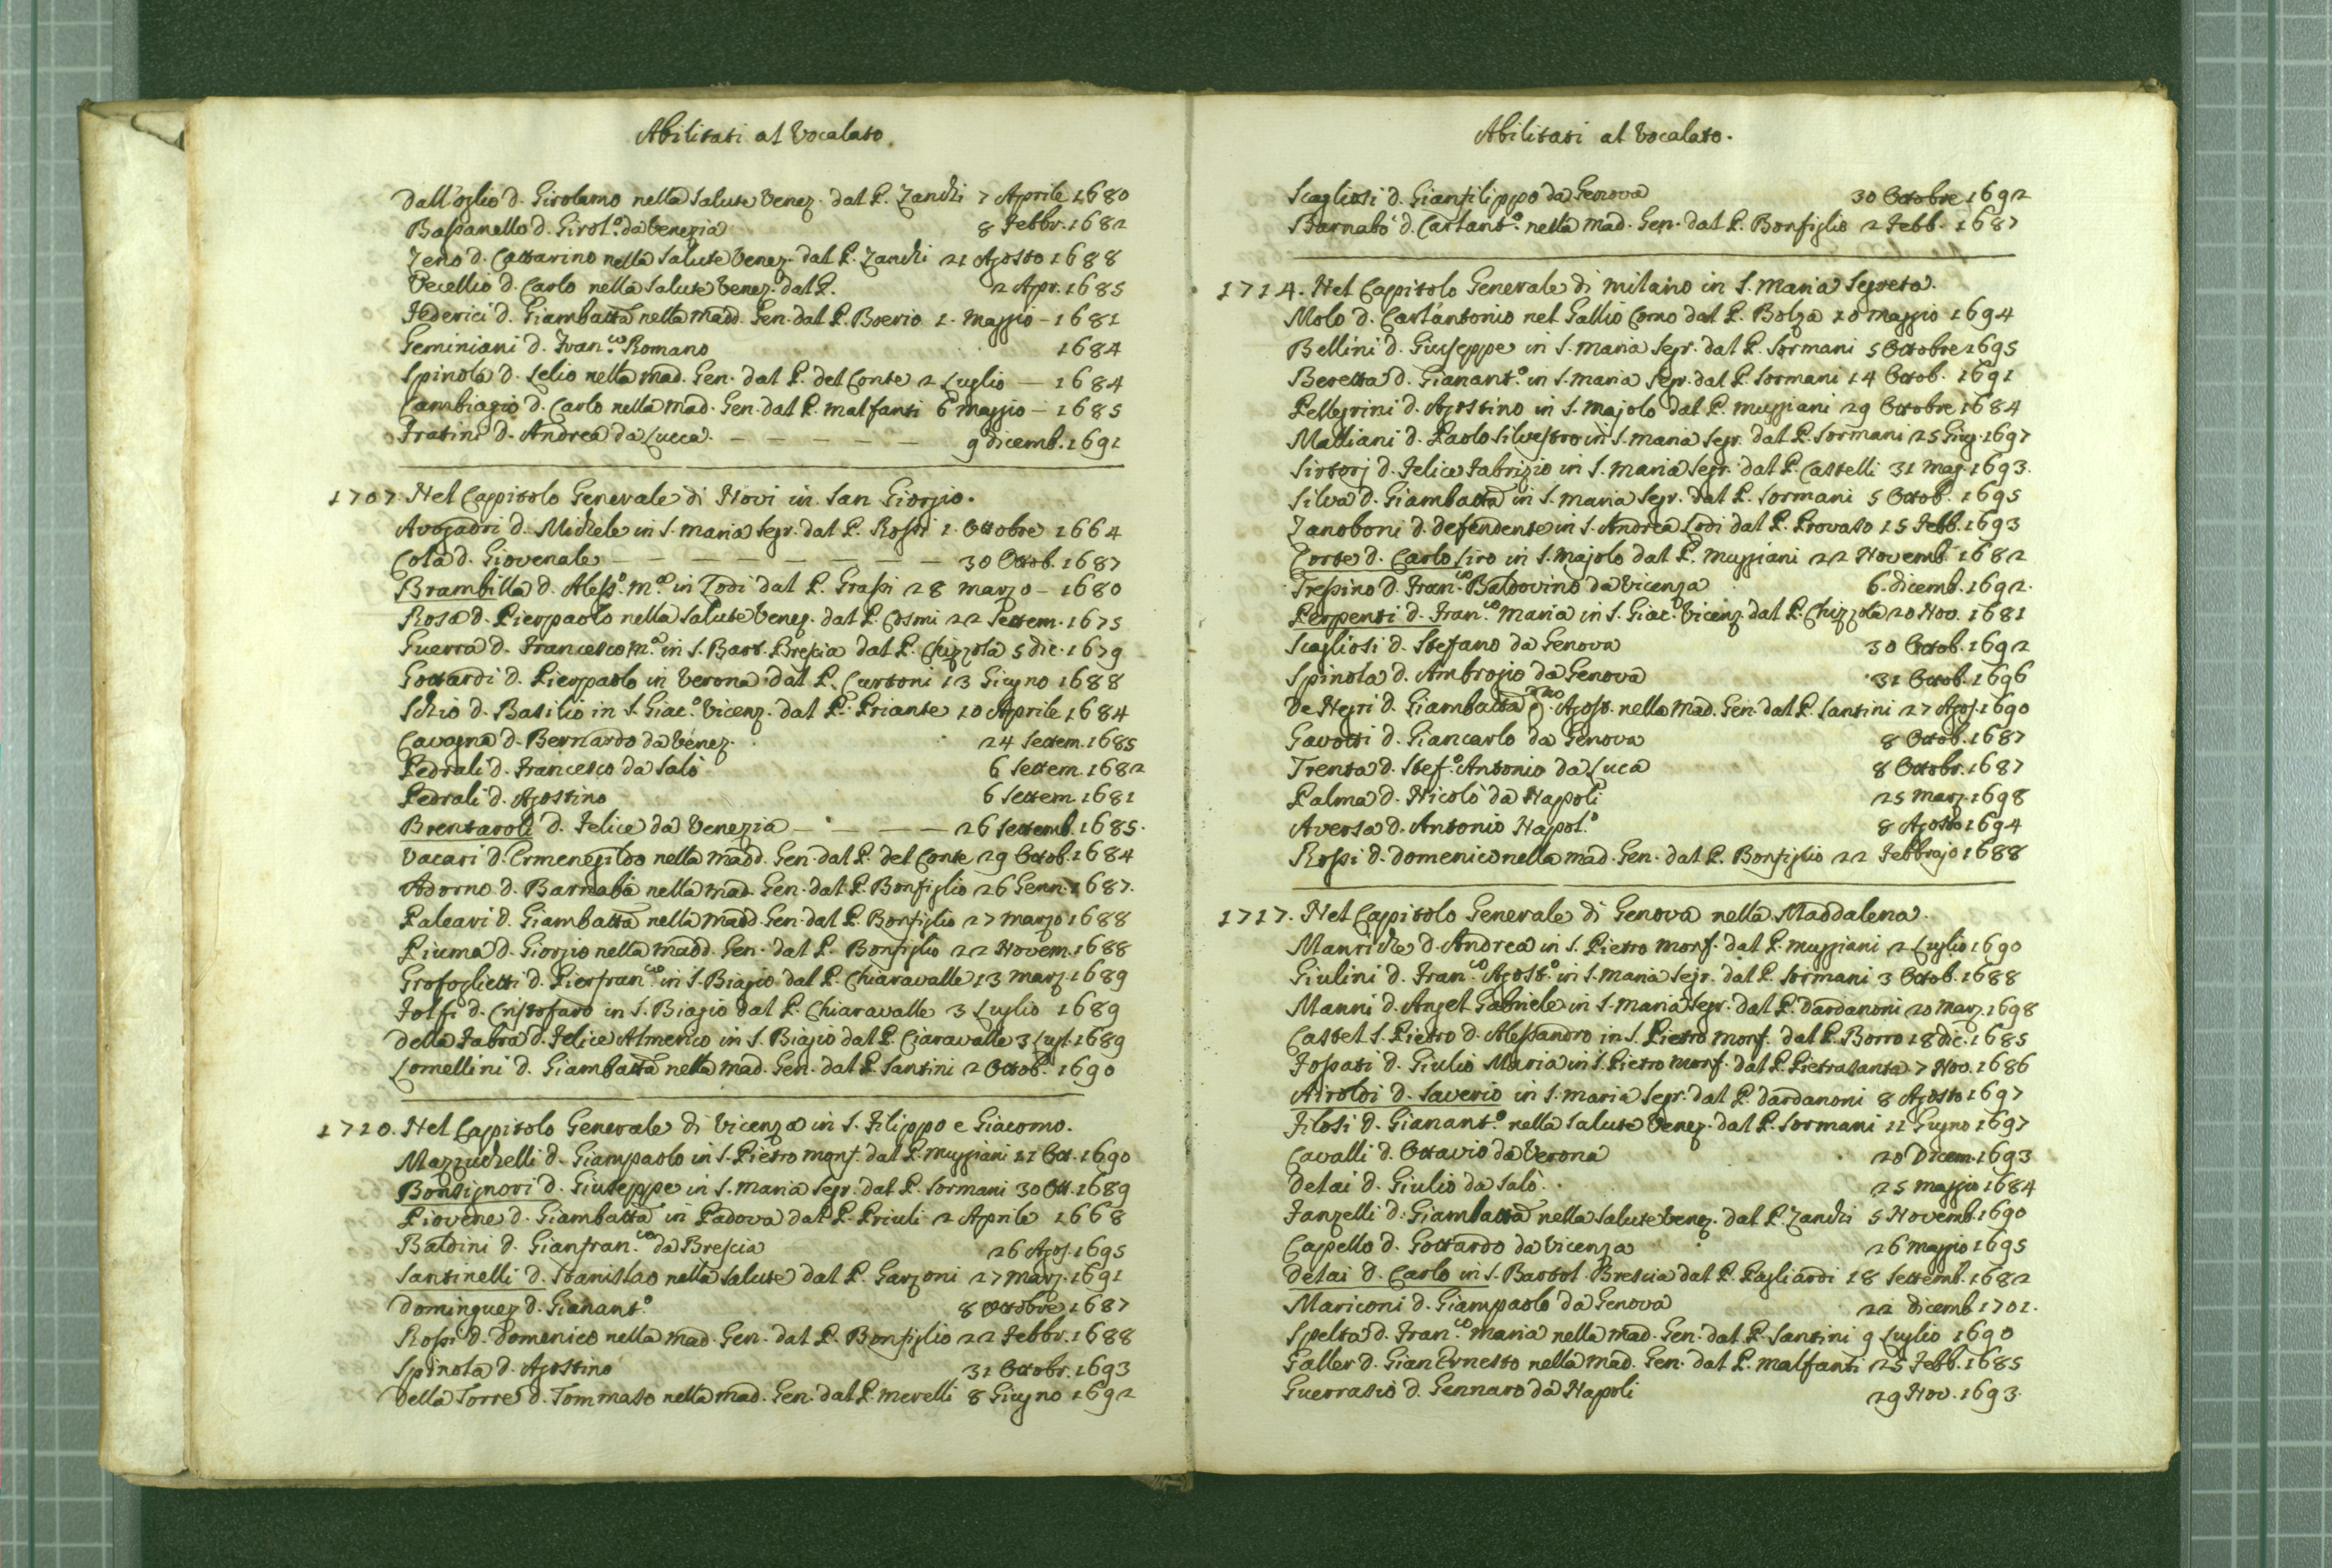 Abilitati al Vocalato.
Dall'oglio d. Girolamo nella Salute Venez. dal P. Zanchi 7 Aprile 1680
Bassanello d. Girol.º da Venezia 8 Febbr. 1682
Zeno d. Cattarino nella Salute Venez. dal P. Zanchi 21 Agosto 1688
Vecellio d. Carlo nella Salute Venez. dal P. 2 Apr. 1685
Federici d. Giambatta nella Madd. Gen. dal P. Boerio 1. Maggio - 1681
Geminiani d. Fran.co Romano 1684
Spinola d. Lelio nella Mad. Gen. dal P. del Conte 2 Luglio — 1684
Cambiagio d. Carlo nella Mad. Gen. dal P. Malfanti 6 Maggio - 1685
Fratini d. Andrea da Lucca. — — — — — 9 dicemb. 1691
1707. Nel Capitolo Generale di Novi in San Giorgio.
Avogadri d. Michele in S. Maria Segr. dal P. Rossi 1. Ottobre 1664
Cola d. Giovenale — — — — — — — 30 Ottob. 1687
Brambilla d. Aless.º M.ª in Lodi dal P. Grassi 28 Marzo - 1680
Rosa d. Pierpaolo nella Salute Venez. dal P. Cosmi 22 Settem. 1675
Guerra d. Francesco M.ª in S. Bart. Brescia dal P. Chizzola 5 dic. 1679
Gottardi d. Pierpaolo in Verona dal P. Curtoni 13 Giugno 1688
Schio d. Basilio in S. Giac.º Vicenz. dal P. Priante 10 Aprile 1684
Cavagna d. Bernardo da Venez. 24 Settem. 1685
Pedrali d. Francesco da Salò 6 Settem. 1682
Pedrali d. Agostino 6 Settem. 1681
Brentaroli d. Felice da Venezia — — — — 26 Settemb. 1685.
Vacari d. Ermenegildo nella Madd. Gen. dal P. del Conte 29 Ottob. 1684
Adorno d. Barnaba nella Mad. Gen. dal P. Bonfiglio 26 Genn. 1687.
Paleari d. Giambatta nella Madd. Gen. dal P. Bonfiglio 27 Marzo 1688
Piuma d. Giorgio nella Madd. Gen. dal P. Bonfiglio 22 Novem. 1688
Grofoglietti d. Pierfran.co in S. Biagio dal P. Chiaravalle 13 Marz. 1689
Folfi d. Cristofaro in S. Biagio dal P. Chiaravalle 3 Luglio 1689
Della Fabra d. Felice Almerico in S. Biagio dal P. Ciaravalle 3 Lugl. 1689
Lomellini d. Giambatta nella Mad. Gen. dal P. Santini 2 Ottob. 1690
1710. Nel Capitolo Generale di Vicenza in S. Filippo e Giacomo.
Mazzuchelli d. Giampaolo in S. Pietro Monf. dal P. Muggiani 11 Ott. 1690
Bonsignori d. Giuseppe in S. Maria Segr. dal P. Sormani 30 Ott. 1689
Piovene d. Giambatta in Padova dal P. Priuli 2 Aprile 1668
Baldini d. Gianfran.co da Brescia 26 Agos. 1695
Santinelli d. Stanislao nella Salute dal P. Garzoni 27 Marz. 1691
Dominguez d. Gianant.º 8 Ottobre 1687
Rossi d. Domenico nella Mad. Gen. dal P. Bonfiglio 22 Febbr. 1688
Spinola d. Agostino 31 Ottobr. 1693
Della Torre d. Tommaso nella Mad. Gen. dal P. Merelli 8 Giugno 1692
Abilitati al Vocalato.
Scagliosi d. Gianfilippo da Genova 30 Ottobre 1692
Barnabò d. Carlant.º nella Mad. Gen. dal P. Bonfiglio 2 Febb. 1687
1714. Nel Capitolo Generale di Milano in S. Maria Segreta.
Molo d. Carl'antonio nel Gallio Como dal P. Bolza 10 Maggio 1694
Bellini d. Giuseppe in S. Maria Segr. dal P. Sormani 5 Ottobre 1695
Beretta d. Gianant.º in S. Maria Segr. dal P. Sormani 14 Ottob. 1691
Pellegrini d. Agostino in S. Majolo dal P. Muggiani 29 Ottobre 1684
Malliani d. Paolo Silvestro in S. Maria Segr. dal P. Sormani 25 Giug. 1697
Sirtorj d. Felice Fabrizio in S. Maria Segr. dal P. Castelli 31 Mag. 1693.
Silva d. Giambatta in S. Maria Segr. dal P. Sormani 5 Ottob. 1695
Zanoboni d. Defendente in S. Andrea Lodi dal P. Provato 15 Febb. 1693
Corte d. Carlo Siro in S. Majolo dal P. Muggiani 22 Novemb. 1682
Trespino d. Fran.co Baldovino da Vicenza 6. dicemb. 1692.
Perpenti d. Fran.co Maria in S. Giac.º Vicenz. dal P. Chizzola 20 Nov. 1681
Scagliosi d. Stefano da Genova 30 Ottob. 1692
Spinola d. Ambrogio da Genova 31 Ottob. 1696
De Negri d. Giambatta Agost. nella Mad. Gen. dal P. Santini 27 Agos. 1690
Gavotti d. Giancarlo da Genova 8 Ottob. 1687
Trenta d. Stef.º Antonio da Luca 8 Ottobr. 1687
Palma d. Nicolò da Napoli 25 Marz. 1698
Aversa d. Antonio Napol.º 8 Agosto 1694
Rossi d. Domenico nella Mad. Gen. dal P. Bonfiglio 22 Febbrajo 1688
1717. Nel Capitolo Generale di Genova nella Maddalena.
Manriche d. Andrea in S. Pietro Monf. dal P. Muggiani 2 Luglio 1690
Giulini d. Fran.co Agost.º in S. Maria Segr. dal P. Sormani 3 Ottob. 1688
Manni d. Angel Gabriele in S. Maria Segr. dal P. Dardanoni 20 Marz. 1698
Castel S. Pietro d. Alessandro in S. Pietro Monf. dal P. Borro 18 dic. 1685
Fossati d. Giulio Maria in S. Pietro Monf. dal P. Pietrasanta 7 Nov. 1686
Airoldi d. Saverio in S. Maria Segr. dal P. Dardanoni 8 Agosto 1697
Filosi d. Gianant.º nella Salute Venez. dal P. Sormani 11 Giugno 1697
Cavalli d. Ottavio da Verona 20 Dicem. 1693
Delai d. Giulio da Salò. 25 Maggio 1684
Fanzelli d. Giambatta nella Salute Venez. dal P. Zanchi 5 Novemb. 1690
Cappello d. Gottardo da Vicenza 26 Maggio 1695
Delai d. Carlo in S. Bartol. Brescia dal P. Pagliardi 18 Settemb. 1682
Mariconi d. Giampaolo da Genova 22 dicemb. 1701.
Spelta d. Fran.co Maria nella Mad. Gen. dal P. Santini 9 Luglio 1690
Galler d. Gian Ernesto nella Mad. Gen. dal P. Malfanti 25 Febb. 1685
Guerrasio d. Gennaro da Napoli 29 Nov. 1693.